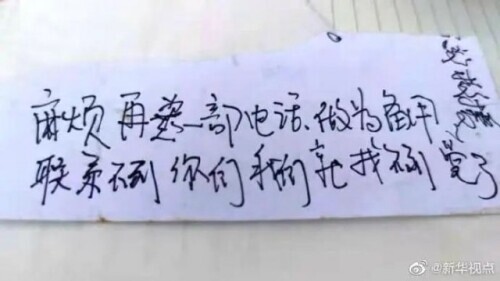 麻烦再装一部电话、做为备用
联系不到你们我们就找不到党了
@新华视点